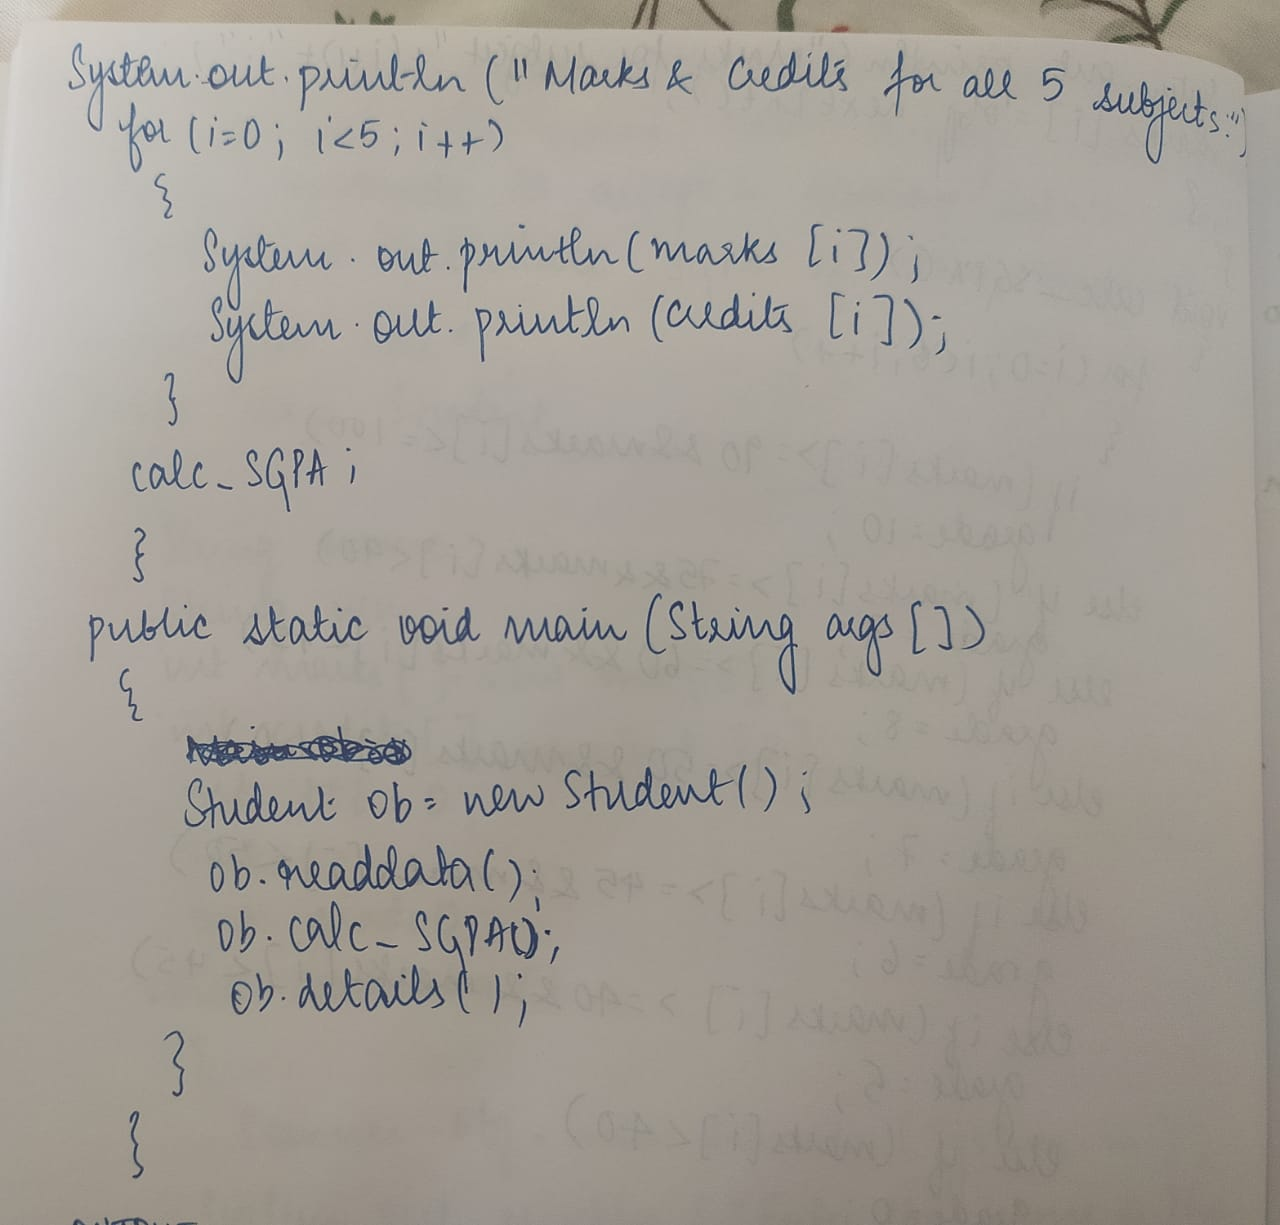 System.out.println ("Marks & Credits for all 5 subjects:")
for (i=0; i<5; i++)
{
System.out.println(marks [i]);
System.out.println (credits [i]);
}
calc_SGPA;
}
public static void main (String args [])
{
Student ob= new Student();
ob.readdata();
ob.calc_SGPA();
ob.details();
}
}